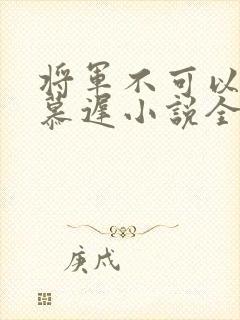 将军不可以
慕遲小說全
庚戌